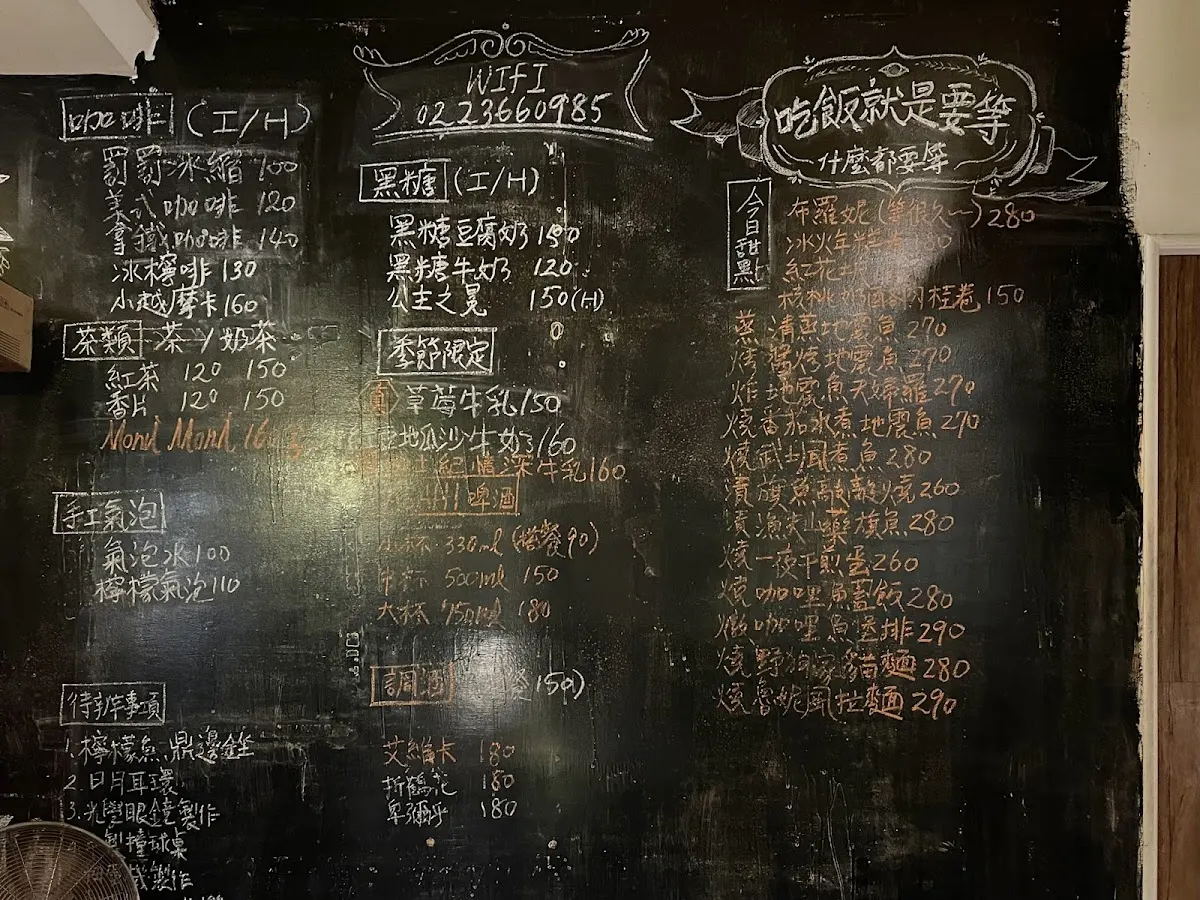 咖啡 (I/H)
罰罰冰縮 100
美式咖啡 120
拿鐵咖啡 140
冰檸啡 130
小越摩卡 160
茶類 茶 / 奶茶
紅茶 120 150
香片 120 150
Mond Mond
手工氣泡
氣泡水 100
檸檬氣泡 110
待辦事項
1. 檸檬魚 鼎邊銼
2. 日月耳環
3. 光學眼鏡製作
撞球桌
製作
WIFI
02 23660985
黑糖 (I/H)
黑糖豆腐奶
黑糖牛奶 120
公主之冕 150(H)
季節限定
草莓牛乳 150
地瓜沙牛奶 160
紀情深牛乳 160
啤酒
小杯 330ml (搭餐90)
中杯 500ml 150
大杯 750ml 180
調酒 150)
艾維卡 180
折鶴花 180
卑彌乎 180
吃飯就是要等
什麼都要等
今日甜點
布羅妮 (等很久~) 280
冰火
紅花
核桃 桂卷 150
蒸 清蒸地震魚 270
烤 醬烤地震魚 270
炸 地震魚天婦羅 290
燒 番茄水煮地震魚 270
燒 武士風煮魚 280
漬 旗魚 260
漬 漁夫 藥旗魚 280
燒 一夜干煎蛋 260
燒 咖哩魚蓋飯 280
燉 咖哩魚 排 290
燒 野狗家貓麵 280
燒 魯妮風拉麵 290